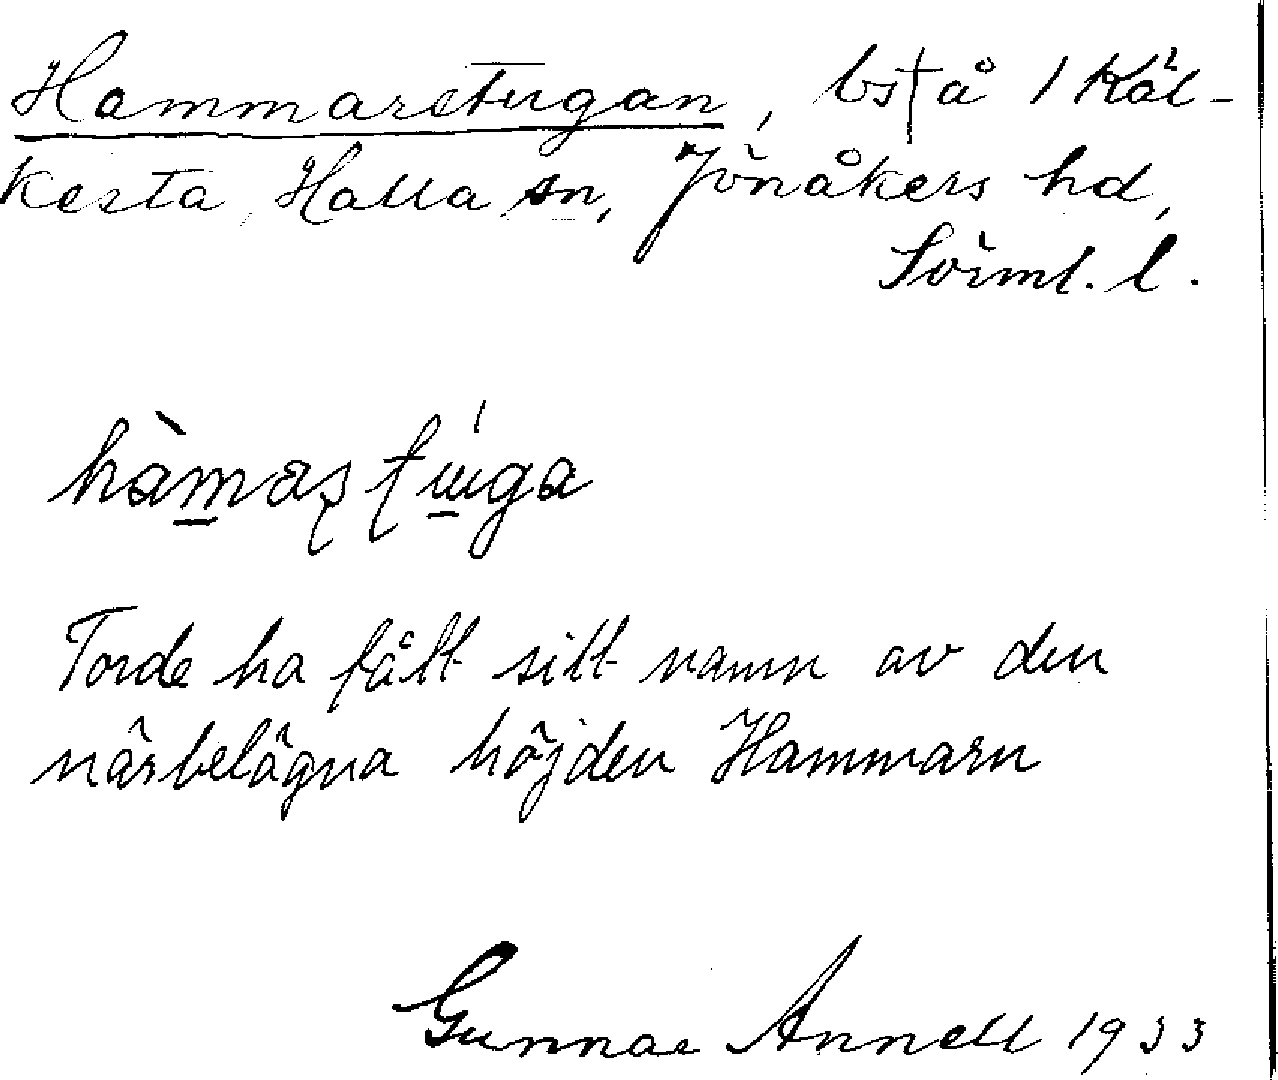 Hammarstugan, bst† å 1 Käl-
kesta, Halla sn, Jönåkers hd,
Sörml. l.
Torde ha fått sitt namn av den
närbelägna höjden Hammarn
Gunnar Annell 1933